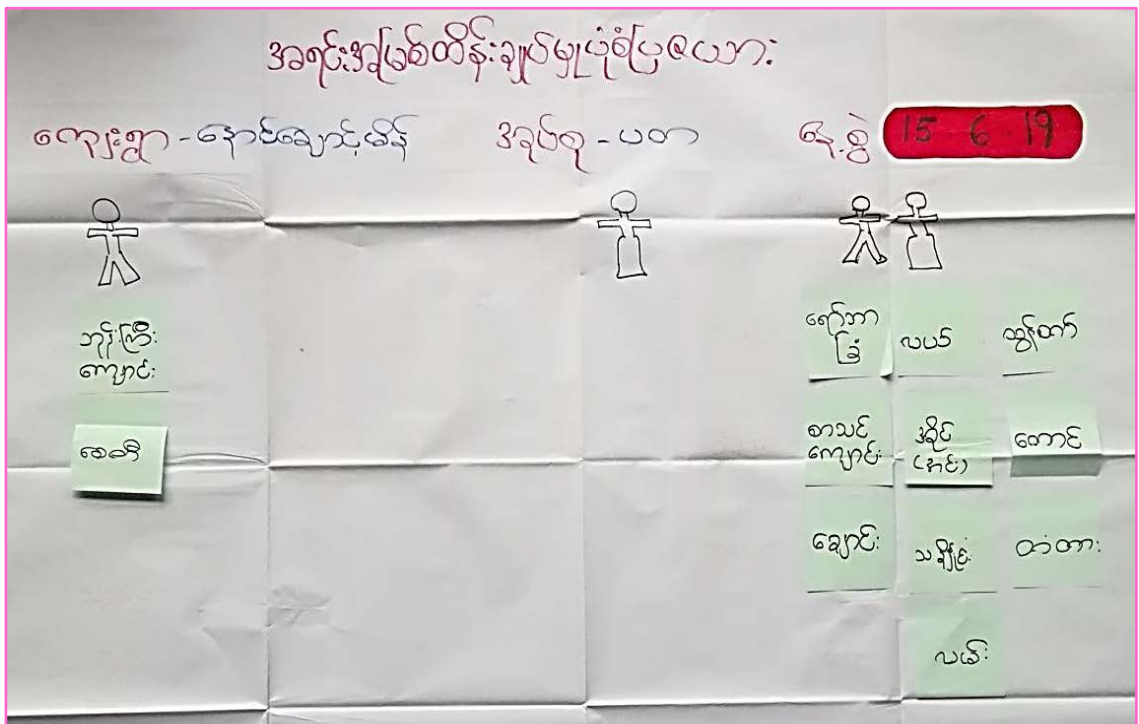 အရင်းအမြစ်ထိန်းချုပ်မှုပုံစံပြဇယား
ကျေးရွာ - နောင်ချောင့်မိန် အုပ်စု - ပတာ နေ့စွဲ 15 6 19
ဘုန်းကြီး
ကျောင်း
စေတီ
ရော်ဘာ
ခြံ
လယ်
သွန်တာ်
စာသင်
ကျောင်း
အိုင်
(အင်း)
တောင်
ချောင်း
သချိုင်း
တံတား
လမ်း